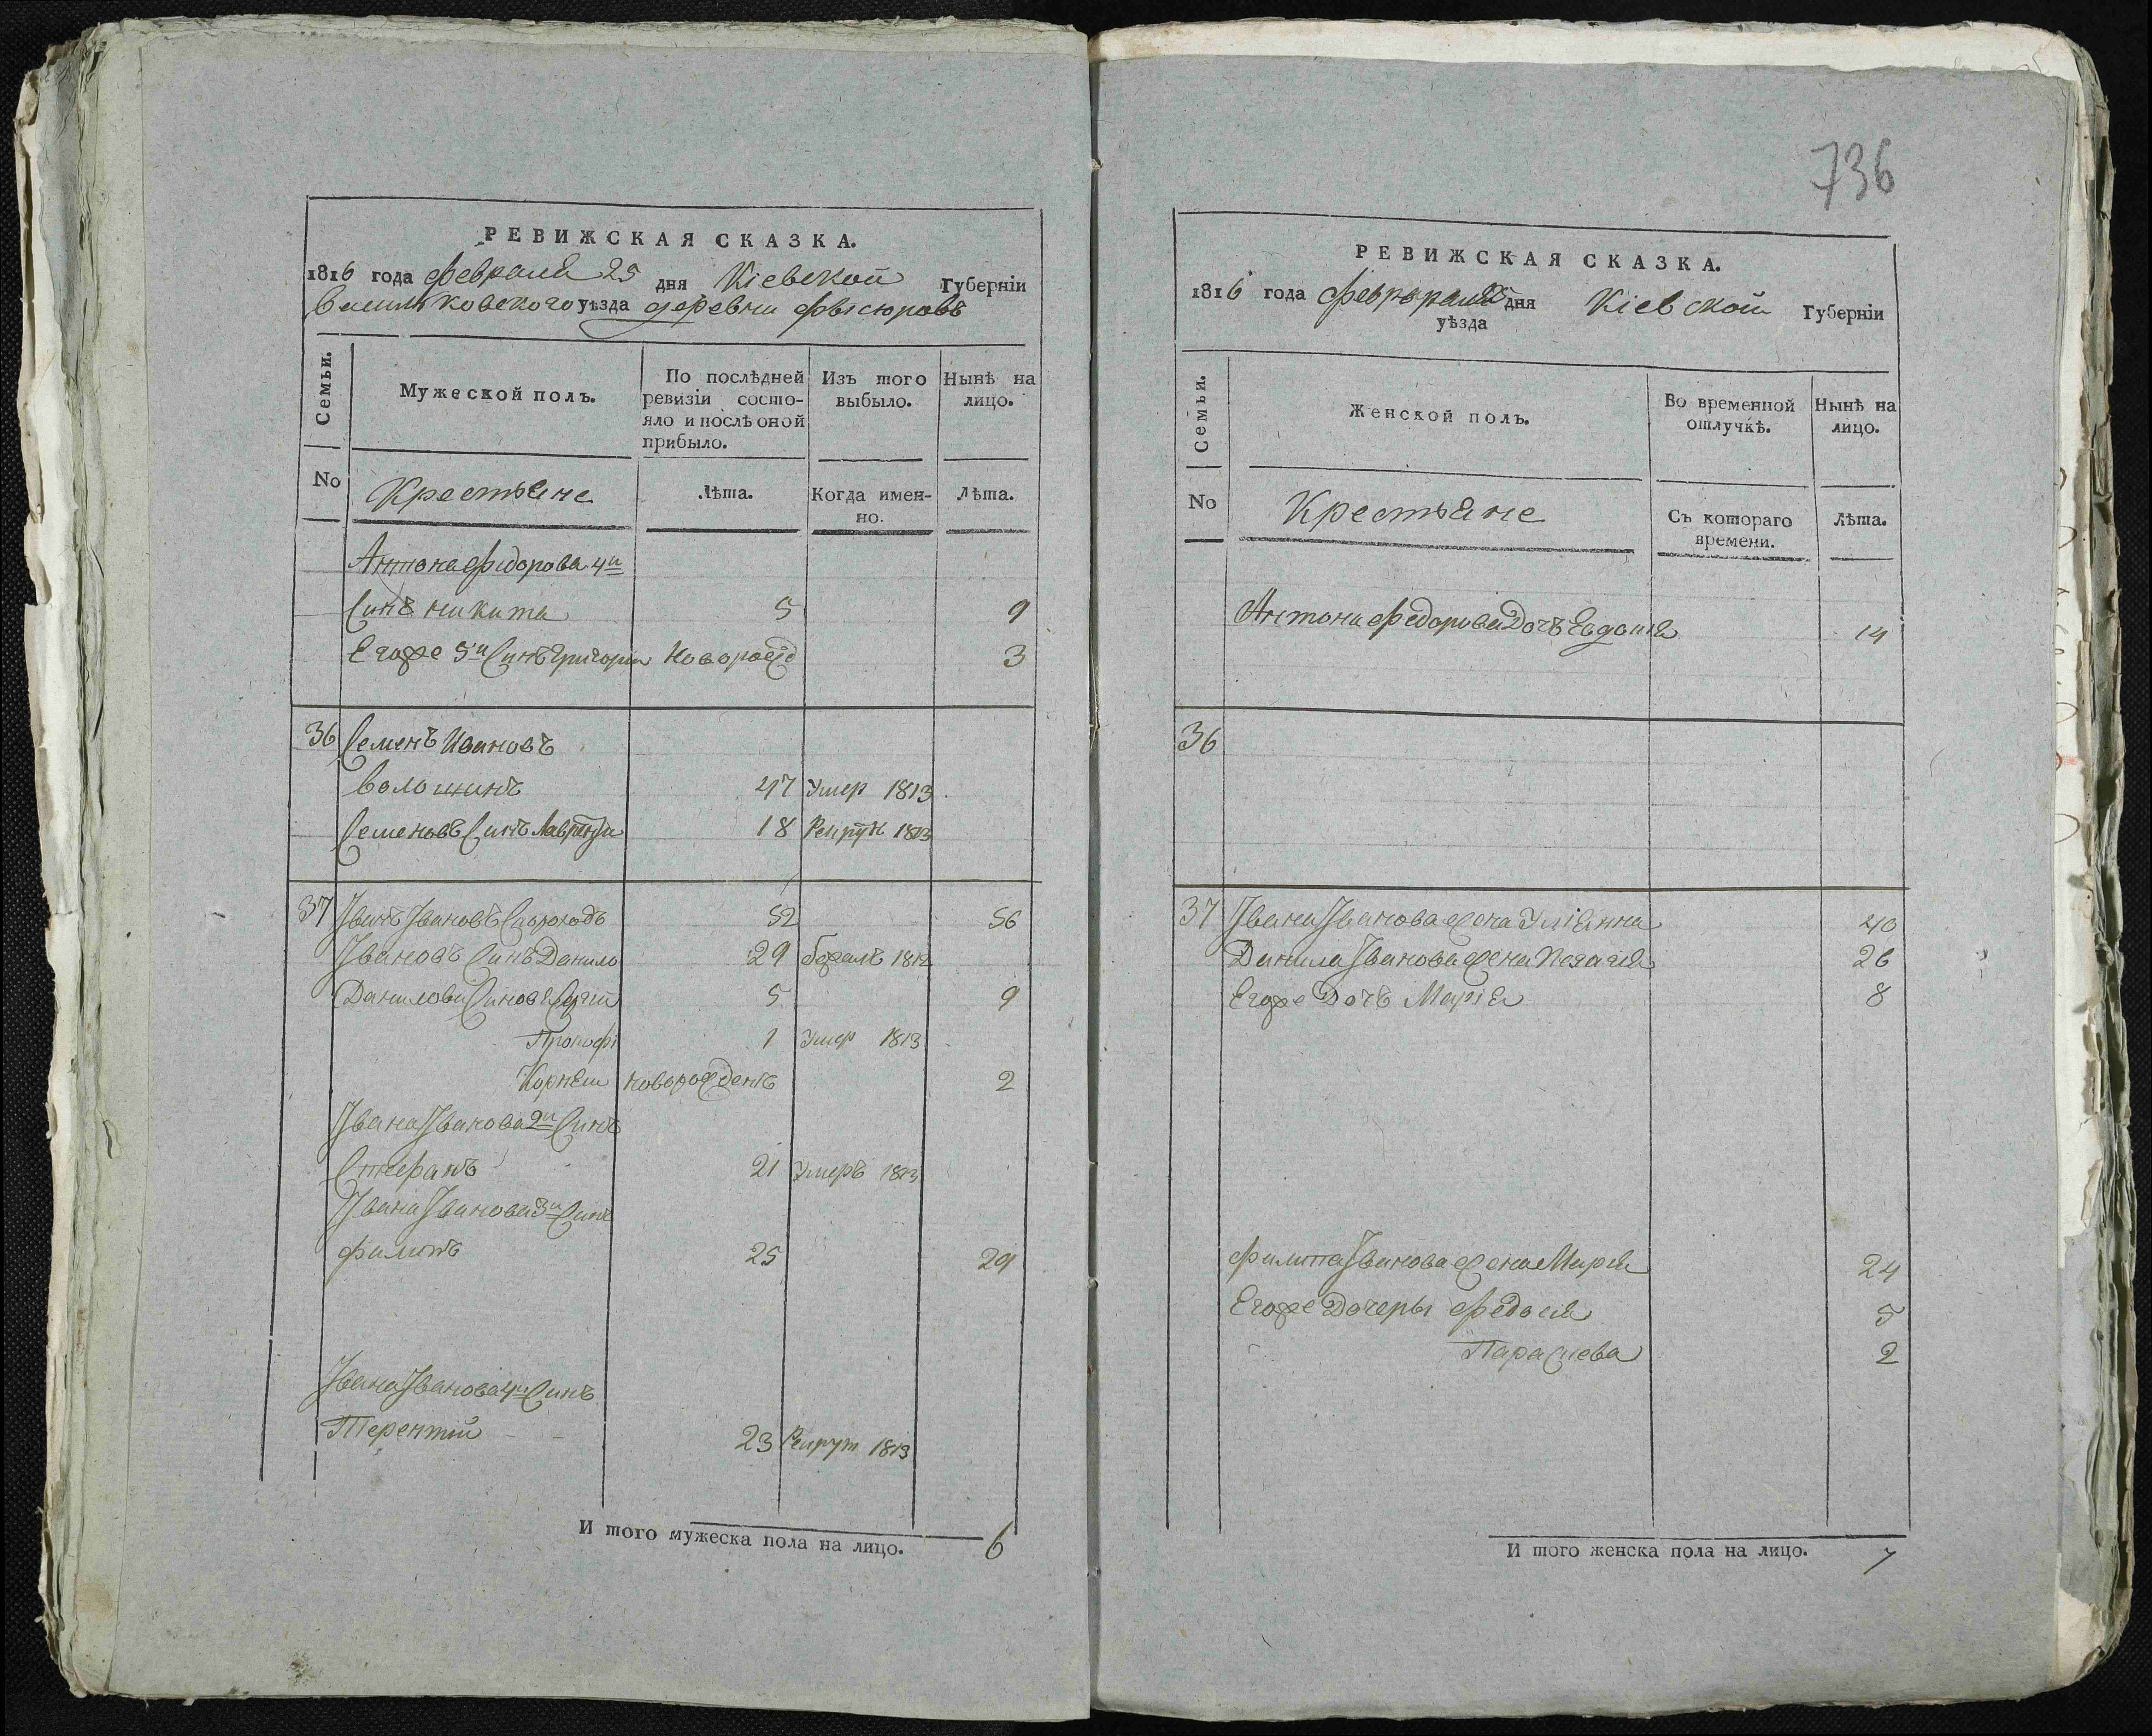 РЕВИЖСКАЯ СКАЗКА.
1816 года февраля 25 дня Кіевской Губерніи
Васильковского уѣзда деревни
Семьи.
Мужеской полъ.
По послѣдней ревизіи состояло и послѣ оной прибыло.
Изъ того выбыло.
Нынѣ на лицо.
No
Крестьяне
Лѣта.
Когда именно.
Лѣта.
Антона Федорова 4й
Синъ Никита 5 9
Егоже 5й Синъ Григорий новорожд 3
36 Семенъ Ивановъ
Волошинъ 47 Умер 1813
Семеновъ Синъ Лаврентии 18 Рекрут 1813
37 Іванъ Івановъ Скороходъ 52 56
Івановъ Синъ Данило 29 бежалъ 1812
Данилови Синовя 5 9
Прокофі 1 Умер 1813
Корнеи новорожденъ 2
Івана Іванова 2й Синъ
Стефанъ 21 Умеръ 1813
Івана Іванова 3й Синъ
Филипъ 25 29
Івана Іванова 4й Синъ
Терентий 23 Рекрут 1813
И того мужеска пола на лицо. 6
736
РЕВИЖСКАЯ СКАЗКА.
1816 года дня Кіевской Губерніи
уѣзда
Семьи.
Женской полъ.
Во временной отлучкѣ.
Нынѣ на лицо.
No
Крестьяне
Съ котораго времени.
Лѣта.
Антона Федорова Дочъ Евдокия 14
36
37 Івана Іванова жена Уліянна 40
Данила Іванова жена Пелагия 26
Егоже Дочъ Марія 8
Филипа Іванова жена Мария 24
Егоже Дочеры Федосия 5
Параскева 2
И того женска пола на лицо. 7